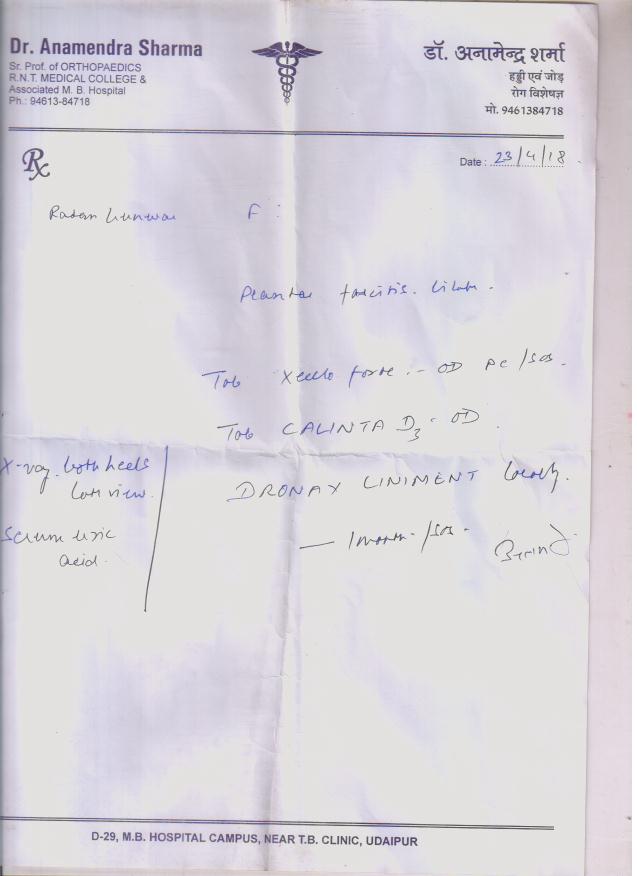 Dr. Anamendra Sharma
Sr. Prof. of ORTHOPAEDICS
R.N.T. MEDICAL COLLEGE &
Associated M. B. Hospital
Ph.: 94613-84718
डॉ. अनामेन्द्र शर्मा
हड्डी एवं जोड़
रोग विशेषज्ञ
मो. 9461384718
Rx
Date : 23/4/18
F :
Plantar
Tab forte :- OD PC /sos.
Tab CALINTA D3 - OD
X-ray both heels
view.
DRONAX LINIMENT locally.
Serum uric
acid.
— 1 month /sos.
D-29, M.B. HOSPITAL CAMPUS, NEAR T.B. CLINIC, UDAIPUR